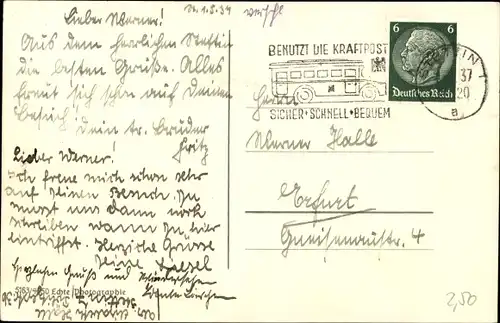 Lieber Werner!
Aus dem herrlichen Stettin
die besten Grüße. Alles
freut sich schon auf deinen
Besuch. Dein tr. Bruder
Fritz
Lieber Werner!
Ich freue mich schon sehr
auf Deinen Besuch. Du
musst uns dann noch
schreiben wann Du hier
eintriffst. Herzliche Grüsse
Deine
Gruß und Wiedersehen
5163/9650 Echte Photographie
BENUTZT DIE KRAFTPOST
SICHER · SCHNELL · BEQUEM
6 6
Deutsches Reich
37
20
a
Herrn
Werner Halle
Erfurt
Gneisenaustr. 4
2,50